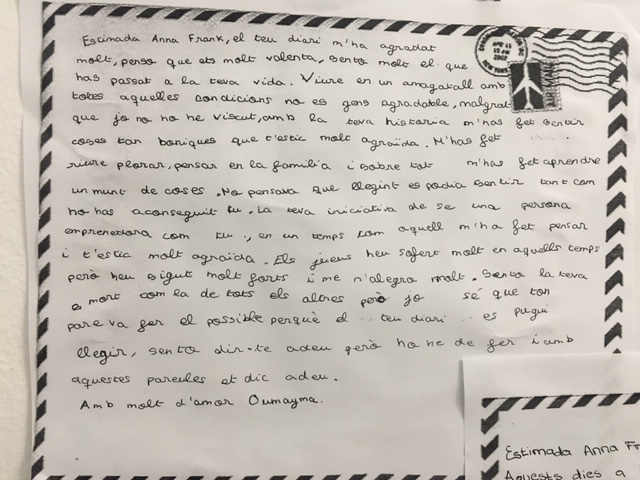 Estimada Anna Frank, el teu diari m'ha agradat
molt, penso que ets molt valenta, sento molt el que
has passat a la teva vida. Viure en un amagatall amb
totes aquelles condicions no es gens agradable, malgrat
que jo no ho he viscut, amb la teva historia m'has fet sentir
coses tan boniques que t'estic molt agraïda. M'has fet
riure plorar, pensar en la família i sobre tot m'has fet aprendre
un munt de coses. No pensava que llegint es podia sentir tant com
ho has aconseguit tu. La teva iniciativa de se una persona
emprenedora com tu, en un temps com aquell m'ha fet pensar
i t'estic molt agraïda. Els jueus heu sofert molt en aquells temps
però heu sigut molt forts i me n'alegro molt. Sento la teva
mort com la de tots els altres però jo sé que ton
pare va fer el possible perquè el teu diari es pugui
llegir, sento dir-te adeu però ho he de fer i amb
aquestes paraules et dic adeu.
Amb molt d'amor Oumayma.
AIR MAIL
Estimada Anna Fr
Aquests dies a